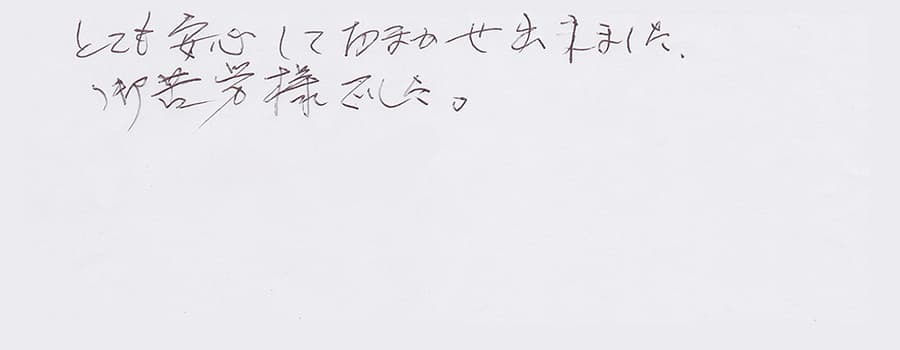 とても安心しておまかせ出来ました。
御苦労様でした。